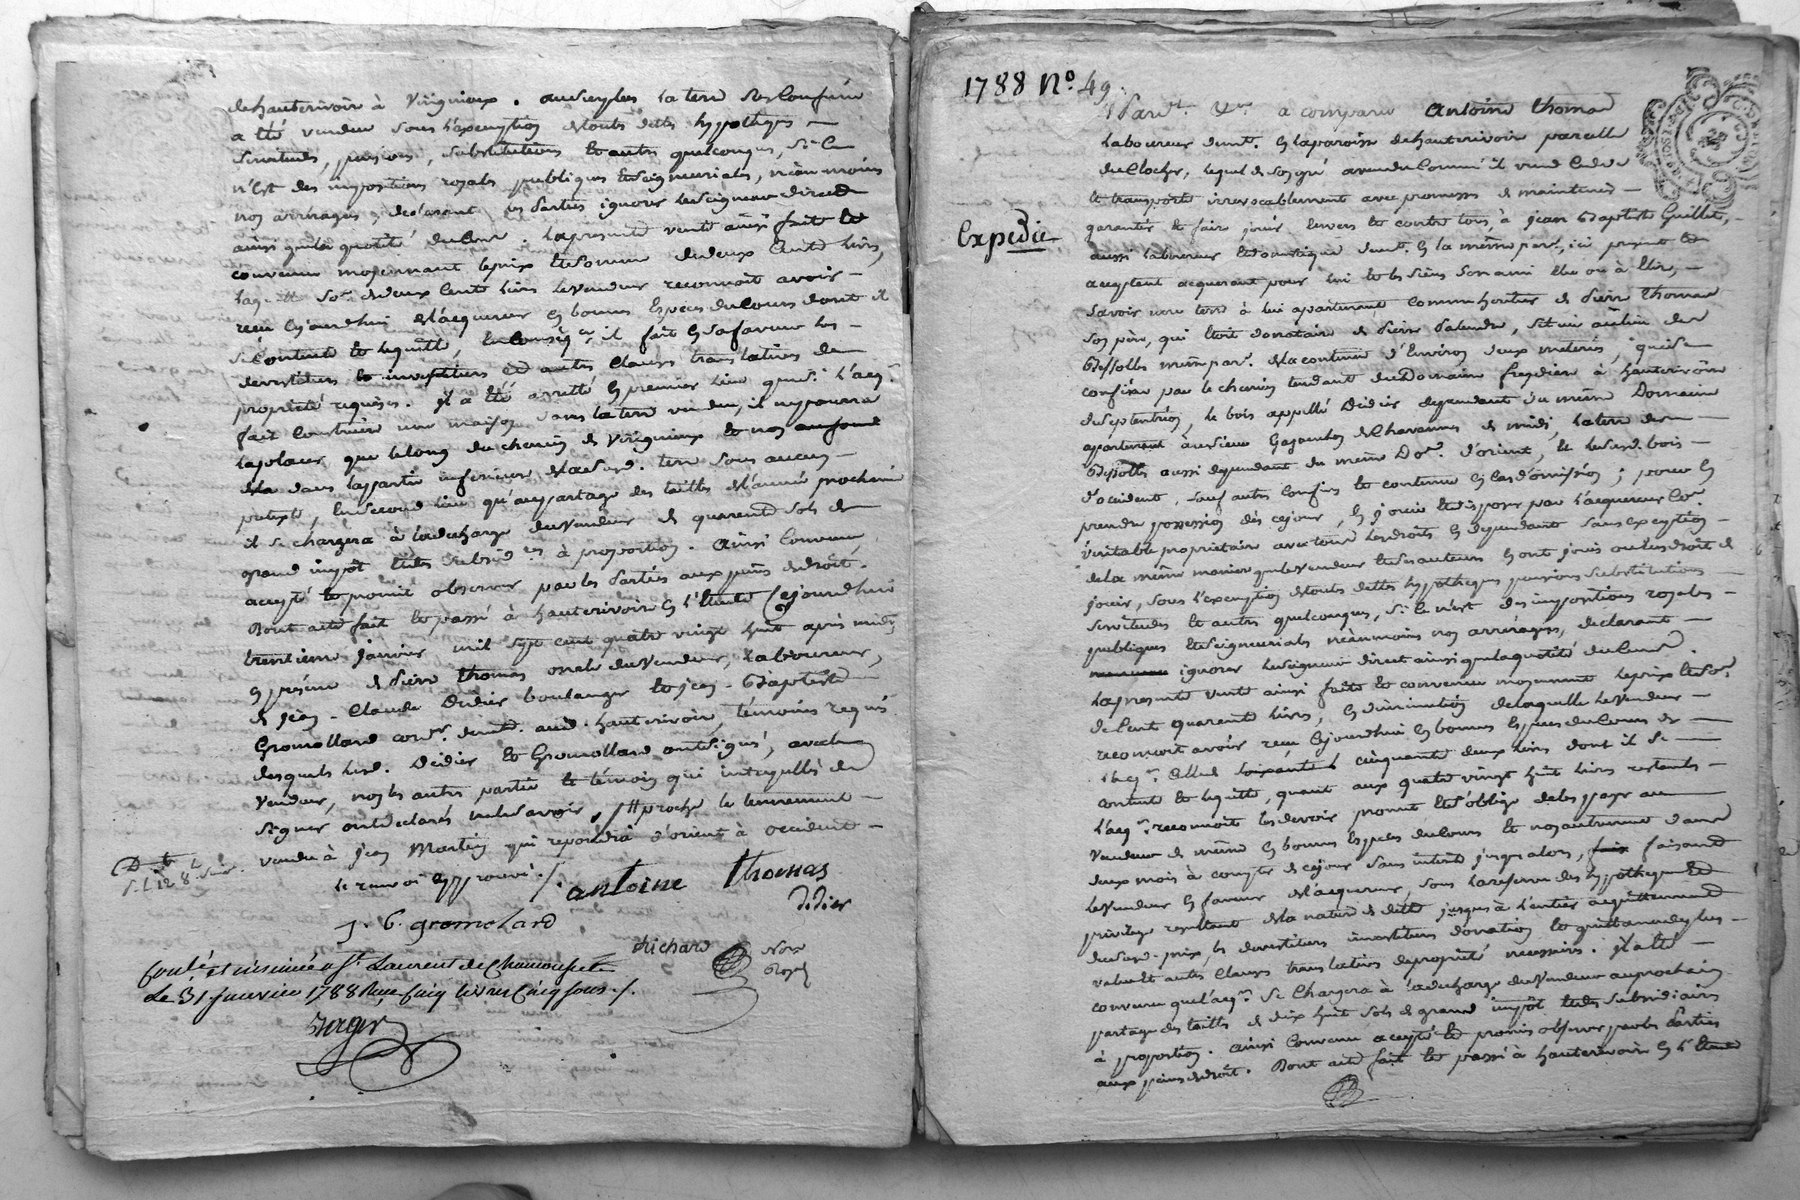 dehauterivoir à Virignieux. audeylus la terre des Confiné
a été vendue sous l'exemption detoutes dettes hypotheques
servitudes, pensions, substitutions et autres quelconques, Si Ce
n'est des impositions royales publiques etseigneuriales, néanmoins
nos arrérages, declarant les Parties ignorer leseigneur direct
ainsi quela quotité ducens. Lapresente vente ainsi faite et
convenue moyennant leprix etsomme dedeux Cents livres,
laquelle so.e dedeux Cents livres levendeur reconnait avoir
reçu cejourdhui del'acquereur en bonnes Especes ducours dont il
se Contente et lequitte, en il fait en safaveur les
devestitures et investitures et autres Clauses translatives de
propriété requises. il a été arretté en premier lieu que si l'acq.r
fait Construire une maison dans laterre vendue, il nepourra
laplacer que lelong duchemin de Virignieux et non
dans lapartie inferieure delasusd. terre sous aucun
pretexte, Ensecond lieu qu'aupartage des tailles del'année prochaine
il se chargera à ladecharge duvendeur de quarente sols de
grand impôt etdes subsid.res à proportion. Ainsi Convenu
accepté et promis observer par les Parties aux peines dedroit.
Dont acte fait et passé à hauterivoir En l'Etude Cejourdhui
trentieme janvier mil sept cent quatre vingt huit après midy
En présence de Pierre thomas oncle duvendeur, Laboureur,
de jean-Claude Didier boulanger et jean-Baptiste
Gromollard demt. aud. hauterivoir, témoins requis
desquels lesd. Didier et Gromollard ontsigné, avecle
Vendeur, non les autres partie et témoin qui interpellés de
signer ontdeclarés nelesavoir,
vendu à jean Martin qui repondra d'orient à occident
le renvoi approuvé ./. antoine thomas
Didier
J. B. gromolard
Richard Nore
Royal
Conlé et insinuée a St. Laurent de Chamousset
Le 31 janvier 1788 Reçu cinq livres cinq sous ./.
1788 N.o 49.
Expedié
Pard.t &.re a comparu Antoine thomas
Laboureur demt. En laparoisse dehauterivoir parcelle
duClocher, lequel de son gré avendu Comme il vend Cede
et transporte irrevocablement avec promesse de maintenir
garantir et faire jouir Envers et contre tous, à jean Baptiste Guillet,
aussi Laboureur etdomestique demt. En la même par.e, ici present et
acceptant acquereur pour lui et les siens Son ami Elu ou à Elire,
Savoir une terre à lui apartenante Comme heritier de Pierre thomas
son père, qui étoit donataire de Pierre située au lieu des
même par.e delacontenue d'Environ deux meterées, quise
confine par le chemin tendant duDomaine à hauterivoire
deseptentrion, le bois appellé Didier dependant du même Domaine
apartenant àusieur de Chavannes de midi, laterre
aussi dependant du même Do.e d'orient, et lesusd. bois
d'occident, sauf autres Confins et contenue En Casd'omission; pour En
prendre possession dès cejour, En jouir etdisposer par l'acquereur Co.e
véritable proprietaire avectous lesdroits En dependants sansexception
dela même maniere quelevendeur etsesauteurs Enont jouis oueusdroit de
jouir, sous l'exemption detoutes dettes hypotheques pensions substitutions
Servitudes et autres quelconques, Si Ce n'est des impositions royales
publiques etseigneuriales néanmoins nos arrérages, declarant
ignorer leseigneur direct ainsi quelaquotité ducens.
Lapresente vente ainsi faite et convenue moyennant leprix etso.e
deCent quarente livres, En diminution delaquelle levendeur
reconnoit avoir reçu Cejourdhui En bonnes Especes duCours de
l'acq.r Celle cinquante deux livres dont il se
contente et lequitte, quant aux quatre vingt huit livres restants
l'acq.r reconnoit les devoir promet ets'oblige deles payer au
Vendeur de même En bonnes Especes duCours et nonautrement dans
deux mois à compter de cejour sans interet jusqualors, faisant
levendeur En faveur del'acquereur, Sous lareserve des hypotheque et
privilege resultant delanature de dette jusques à l'entier acquittement
dususd. prix, les devestitures investitures donation et quittance deplus
value et autres Clauses translatives depropriété necessaires. il a été
convenu quel'acq.r Se Chargera à ladecharge duVendeur auprochain
partage des tailles de dix huit Sols de grand impôt etdes subsidiaires
à proportion. Ainsi Convenu accepté et promis observer parles Parties
aux peines dedroit. Dont acte fait et passé à hauterivoir En l'Etude